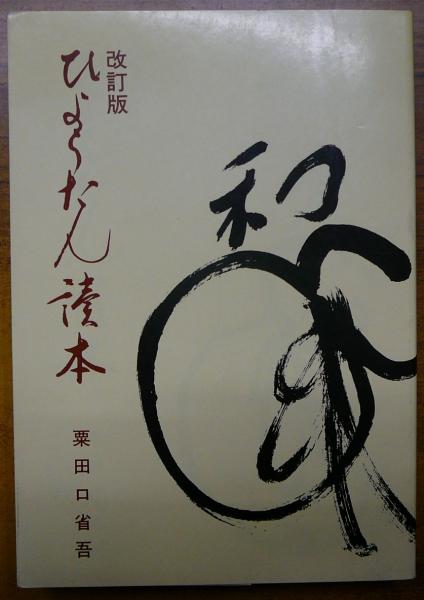 改訂版
ひょうたん讀本
粟田口省吾
和